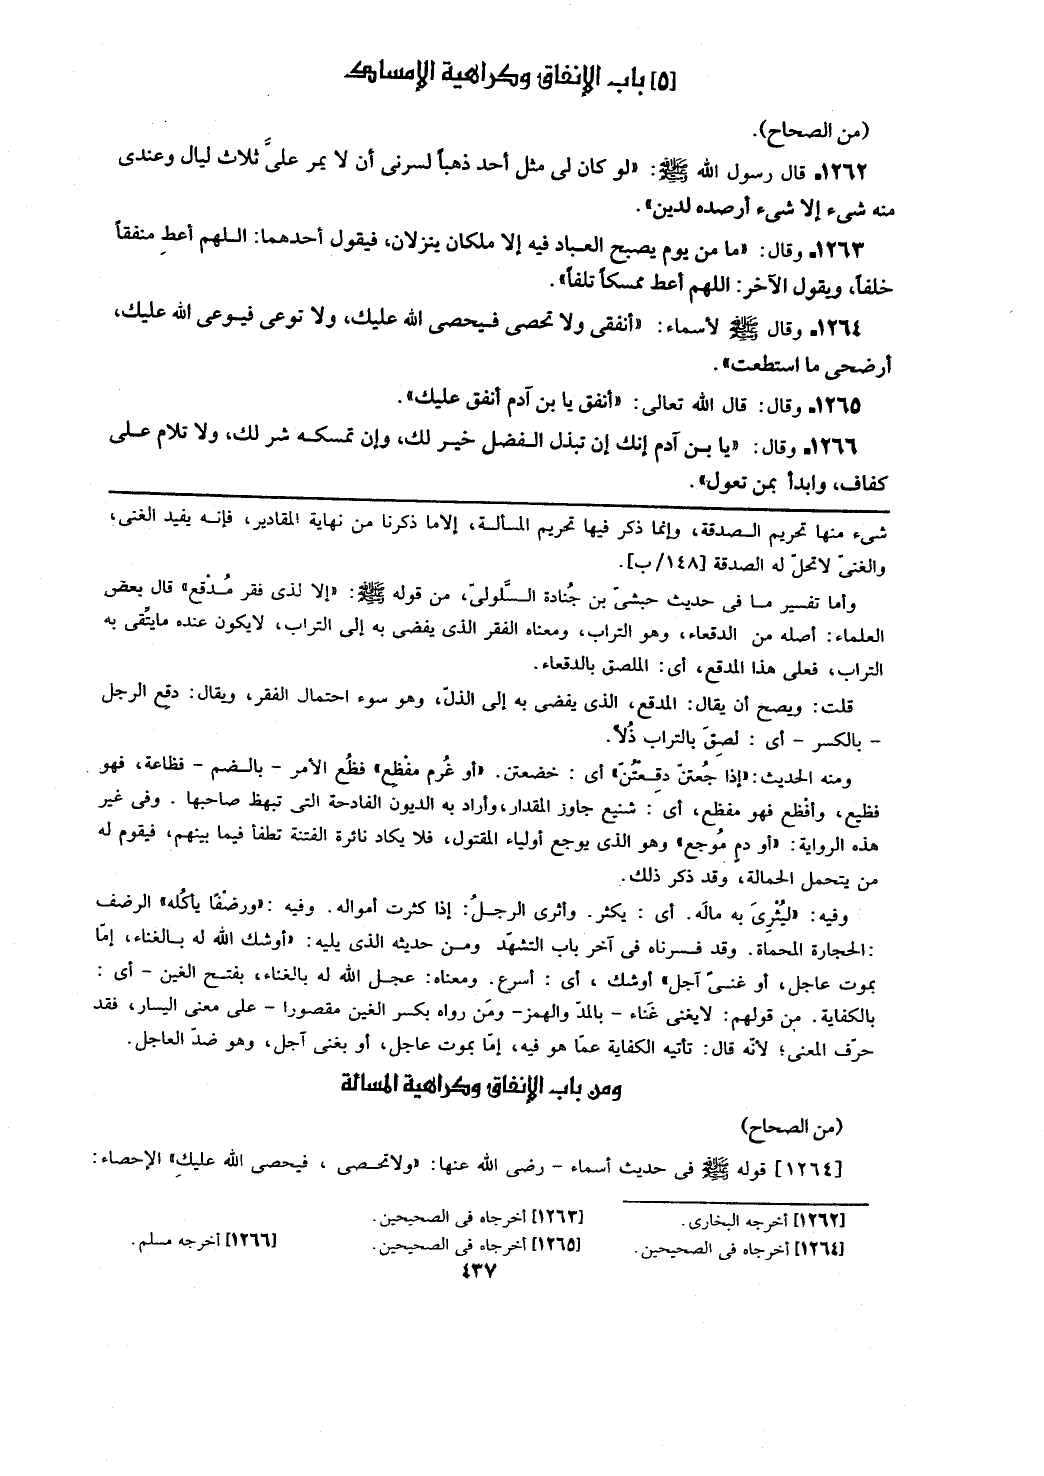 [٥] باب الإنفاق وكراهية الإمساك
(من الصحاح).
١٢٦٢ـ قال رسول الله ﷺ: «لو كان لى مثل أحد ذهباً لسرنى أن لا يمر علىَّ ثلاث ليال وعندى
منه شىء إلا شىء أرصده لدين».
١٢٦٣ـ وقال: «ما من يوم يصبح العباد فيه إلا ملكان ينزلان، فيقول أحدهما: اللهم أعطِ منفقاً
خلفاً، ويقول الآخر: اللهم أعط ممسكاً تلفاً».
١٢٦٤ـ وقال ﷺ لأسماء: «أنفقى ولا تحصى فيحصى الله عليك، ولا توعى فيوعى الله عليك،
أرضحى ما استطعت».
١٢٦٥ـ وقال: قال الله تعالى: «أنفق يا بن آدم أنفق عليك».
١٢٦٦ـ وقال: «يا بن آدم إنك إن تبذل الفضل خير لك، وإن تمسكه شر لك، ولا تلام على
كفاف، وابدأ بمن تعول».
شىء منها تحريم الصدقة، وإنما ذكر فيها تحريم المسألة، إلاما ذكرنا من نهاية المقادير، فإنه يفيد الغنى،
والغنىّ لاتحلّ له الصدقة [١٤٨/ب].
وأما تفسير ما فى حديث حبشىّ بن جُنادة السَّلولىّ، من قوله ﷺ: «إلا لذى فقر مُدْقع» قال بعض
العلماء: أصله من الدقعاء، وهو التراب، ومعناه الفقر الذى يفضى به إلى التراب، لايكون عنده مايتَّقى به
التراب، فعلى هذا المدقع، أى: الملصق بالدقعاء.
قلت: ويصح أن يقال: المدقع، الذى يفضى به إلى الذلّ، وهو سوء احتمال الفقر، ويقال: دقِع الرجل
– بالكسر – أى : لصِقَ بالتراب ذُلاً.
ومنه الحديث: «إذا جُعتنّ دقِعتُنّ» أى : خضعتن. «أو غُرم مفْظِع» فظُع الأمر – بالضم – فظاعة، فهو
فظيع، وأفْظع فهو مفظع، أى : شنيع جاوز المقدار، وأراد به الديون الفادحة التى تبهظ صاحبها . وفى غير
هذه الرواية: «أو دمٍ مُوجع» وهو الذى يوجع أولياء المقتول، فلا يكاد نائرة الفتنة تطفأ فيما بينهم، فيقوم له
من يتحمل الحمالة، وقد ذكر ذلك.
وفيه: «ليُثْرِىَ به مالَه. أى : يكثر. وأثرى الرجلُ: إذا كثرت أمواله. وفيه :«ورضْفًا يأكُله» الرضف
:الحجارة المحماة. وقد فسرناه فى آخر باب التشهّد ومن حديثه الذى يليه: «أوشك الله له بالغناء، إمّا
بموت عاجل، أو غنىّ آجل» أوشك ، أى : أسرع. ومعناه: عجل الله له بالغناء، بفتح الغين – أى :
بالكفاية. من قولهم: لايغنى غَناء – بالمدّ والهمز– ومَن رواه بكسر الغين مقصورا – على معنى اليسار، فقد
حرّف المعنى؛ لأنّه قال: تأتيه الكفاية عمّا هو فيه، إمّا بموت عاجل، أو بغنى آجل، وهو ضدّ العاجل.
ومن باب الإنفاق وكراهية المسألة
(من الصحاح)
[١٢٦٤] قوله ﷺ فى حديث أسماء – رضى الله عنها: «ولاتحصى ، فيحصى الله عليكِ» الإحصاء:
[١٢٦٢] أخرجه البخارى. [١٢٦٣] أخرجاه فى الصحيحين.
[١٢٦٤] أخرجاه فى الصحيحين. [١٢٦٥] أخرجاه فى الصحيحين. [١٢٦٦] أخرجه مسلم.
٤٣٧